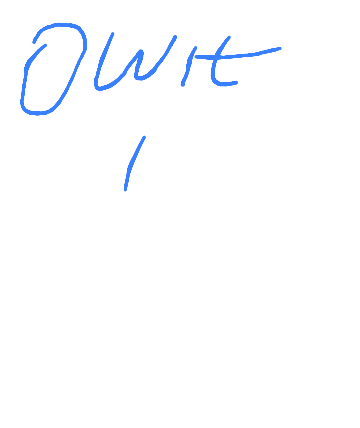 Owit
I